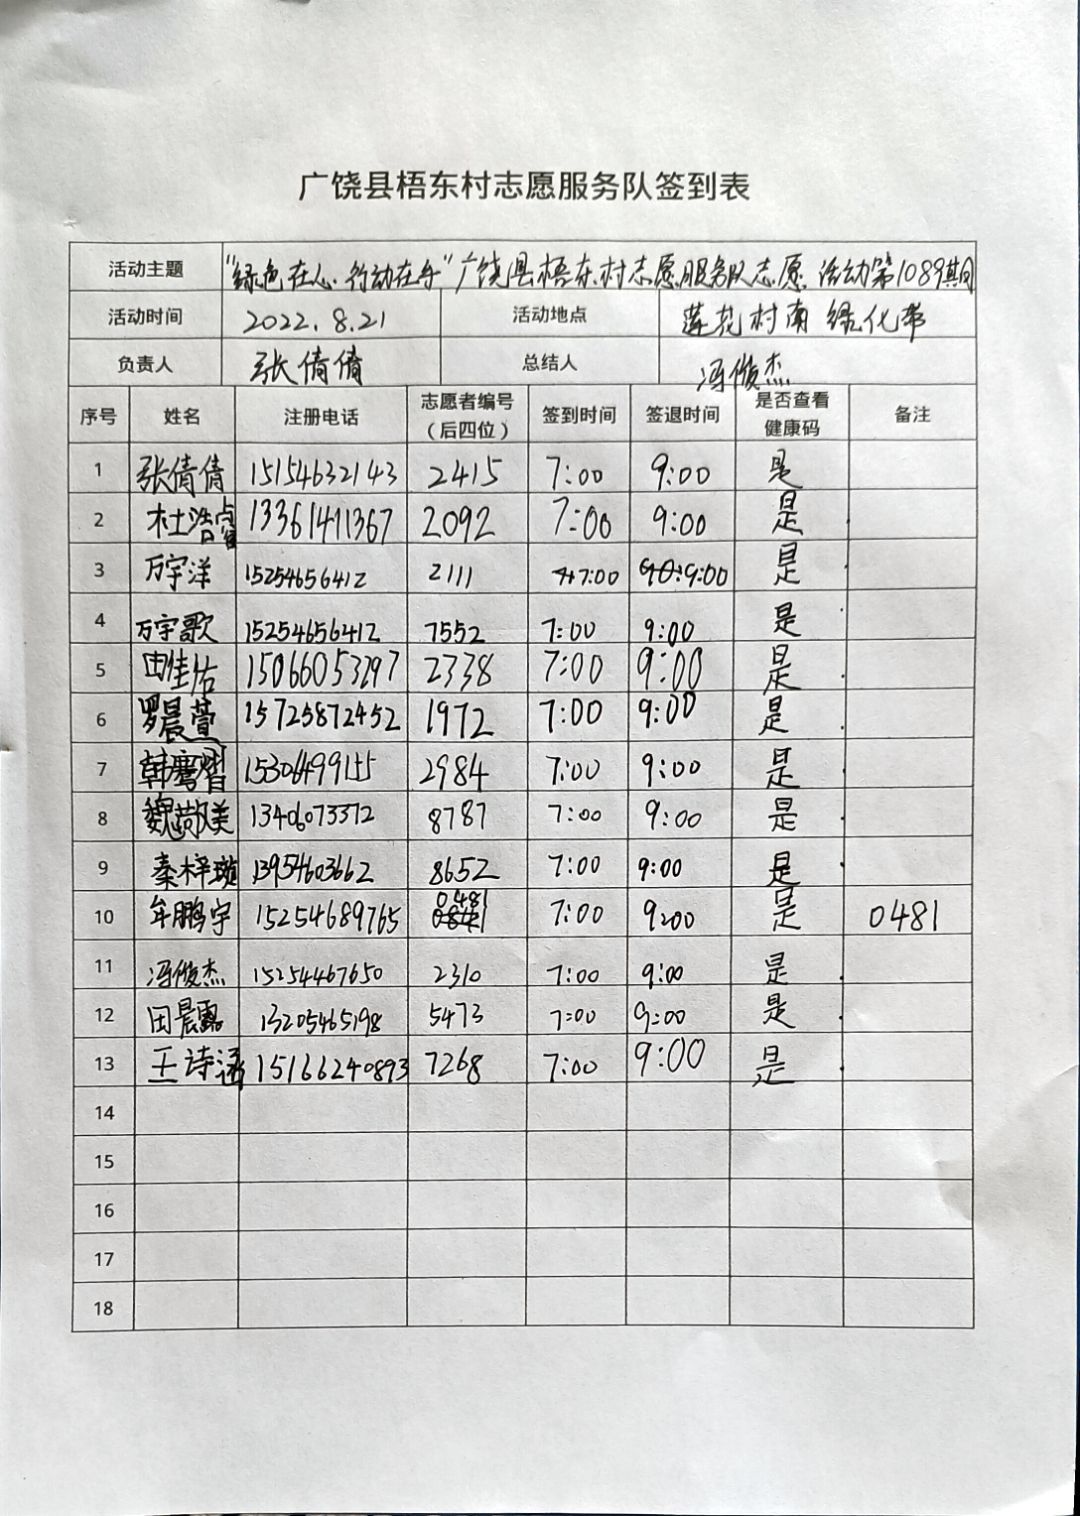 广饶县梧东村志愿服务队签到表
活动主题 "绿色在心·行动在手"广饶县梧东村志愿服务队志愿活动第1089期
活动时间 2022.8.21 活动地点 莲花村南绿化带
负责人 张倩倩 总结人 冯俊杰
序号 姓名 注册电话 志愿者编号（后四位） 签到时间 签退时间 是否查看健康码 备注
1 张倩倩 15154632143 2415 7:00 9:00 是
2 杜浩睿 13361411367 2092 7:00 9:00 是
3 万宇洋 15254656412 2111 7:00 9:00 是
4 万宇歌 15254656412 7552 7:00 9:00 是
5 田佳佑 15066053297 2338 7:00 9:00 是
6 罗晨萱 15725872452 1972 7:00 9:00 是
7 韩骞 15306499155 2984 7:00 9:00 是
8 魏美 13406073372 8787 7:00 9:00 是
9 秦梓璇 13954603662 8652 7:00 9:00 是
10 牟鹏宇 15254689765 0481 7:00 9:00 是 0481
11 冯俊杰 15254467650 2310 7:00 9:00 是
12 田晨露 13205465198 5473 7:00 9:00 是
13 王诗涵 15166240893 7268 7:00 9:00 是
14
15
16
17
18